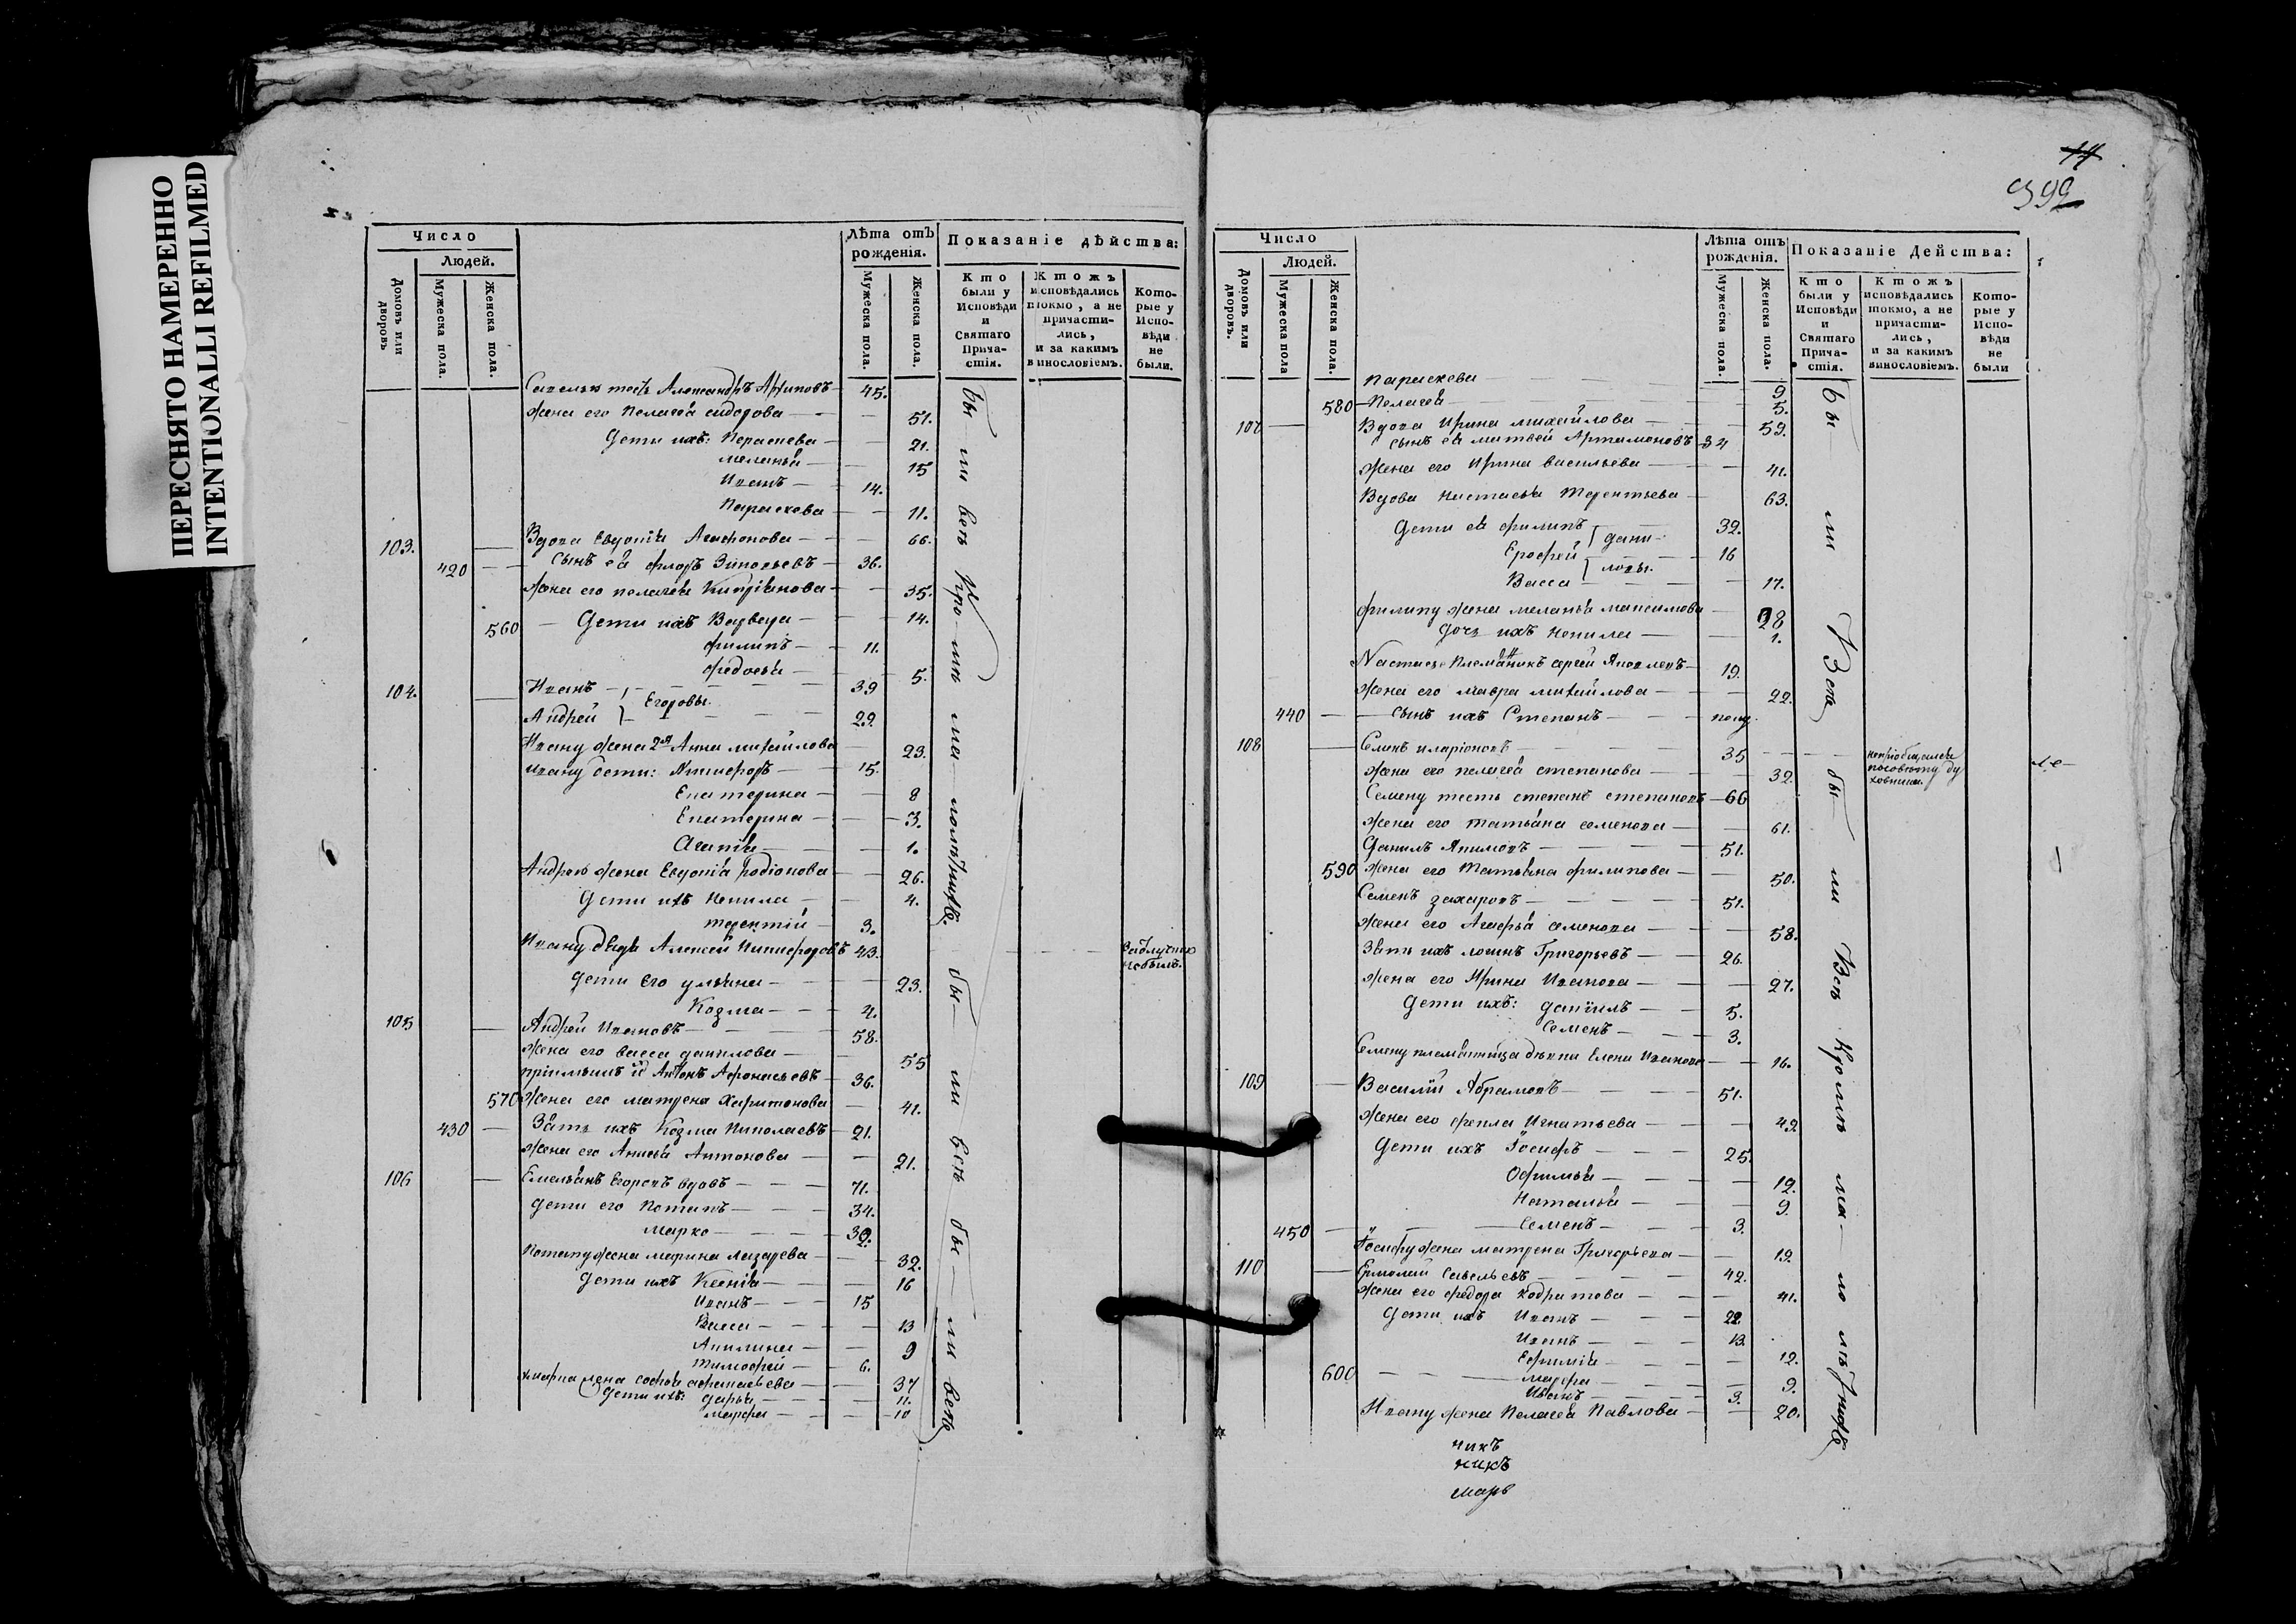 ПЕРЕСНЯТО НАМЕРЕННО
INTENTIONALLI REFILMED
Число
Людей.
Домовъ или дворовъ
Мужеска пола.
Женска пола.
Лѣта отъ рожденія.
Мужеска пола.
Женска пола.
Показаніе дѣйства:
Кто были у Исповѣди и Святаго Причастія.
Ктожъ исповѣдались токмо, а не причастились, и за какимъ винословіемъ.
Которые у Исповѣди не были.
тесть Александръ 45.
жена его Пелагеа сидорова 51.
дети ихъ: Параскева 21.
меланьа 15
Иванъ 14.
Параскева 11.
103. Вдова Евдокіа Агафонова 66.
420 Сынъ еа флоръ Зиновьевъ 36.
жена его пелагеа Кипріанова 35.
560 Дети ихъ Варвара 14.
филипъ 11.
федосьа 5.
104. Иванъ 39
Егоровы.
Андрей 29.
Ивану жена 2я Анна михайлова 23.
Ивану дети: Никифоръ 15.
Екатерина 8
Екатерина 3.
Агапіа 1.
Андрею жена Евдокіа родіонова 26.
Дети ихъ Ненила 4.
терентій 3.
Ивану дядя Алексей Никифоровъ 43.
не былъ.
дети его ульяна 23.
Козма 4.
105 Андрей Ивановъ 58.
жена его васса данилова 55
Антонъ Афонасьевъ 36.
570 жена его матрена Харитонова 41.
430 Зять ихъ Козма Николаевъ 21.
жена его Анисьа Антонова 21.
106 Емельянъ Егоровъ вдовъ 71.
дети его Потапъ 34.
марко 32.
Потапу жена марина лазарева 32.
дети ихъ Ксеніа 16
Иванъ 15
Васса 13
Акилина 9
тимофей 6.
марка жена софьа афанасьева 37
дети ихъ: дарьа 11.
марфа 10
Бы ли всѣ Кромѣ мало
бы ли всѣ бы ли всѣ
14
392
Число
Людей.
Домовъ или дворовъ.
Мужеска пола
Женска пола.
Лѣта отъ рожденія.
Мужеска пола.
Женска пола.
Показаніе Действа:
Кто были у Исповѣди и Святаго Причастія.
Ктожъ исповѣдались токмо, а не причастились, и за какимъ винословіемъ.
Которые у Исповѣди не были
параскева 9
580 Пелагеа 5.
107 Вдова Ирина михайлова 59.
сынъ еа матвей Артамоновъ 34
жена его Ирина васильева 41.
Вдова настасьа Терентьева 63.
дети еа филипъ 32.
Ерофей 16
даниловы.
Васса 17.
филипу жена меланьа максимова 28
дочь ихъ ненила 1.
племянникъ сергей Яковлевъ 19.
жена его мавра михайлова 22.
440 сынъ ихъ Степанъ полу.
108 Семенъ иларіоновъ 35
жена его пелагеа степанова 32.
Семену тесть степанъ степановъ 66
жена его татьяна семенова 61.
Данилъ Якимовъ 51.
590 жена его Татьяна филипова 50.
Семенъ захаровъ 51.
жена его Агафьа семенова 58.
Зять ихъ логинъ Григорьевъ 26.
жена его Ирина Иванова 27.
дети ихъ: даніилъ 5.
Семенъ 3.
Семену племянница девка Елена Иванова 16.
109 Василій Абрамовъ 51.
жена его фекла Игнатьева 49.
дети ихъ Іосифъ 25.
Офимьа 12.
Натальа 9.
450 Семенъ 3.
Іосифу жена матрена Григорьева 19.
110 Ермолай Савельевъ 42.
жена его федора кодратова 41.
дети ихъ Иванъ 22.
Иванъ 13.
Ефиміа 12.
600 марфа 9.
Иванъ 3.
Ивану жена Пелагеа Павлова 20.
бы ли Всѣ
бы ли Всѣ Кромѣ мало
никъ
никъ
марь